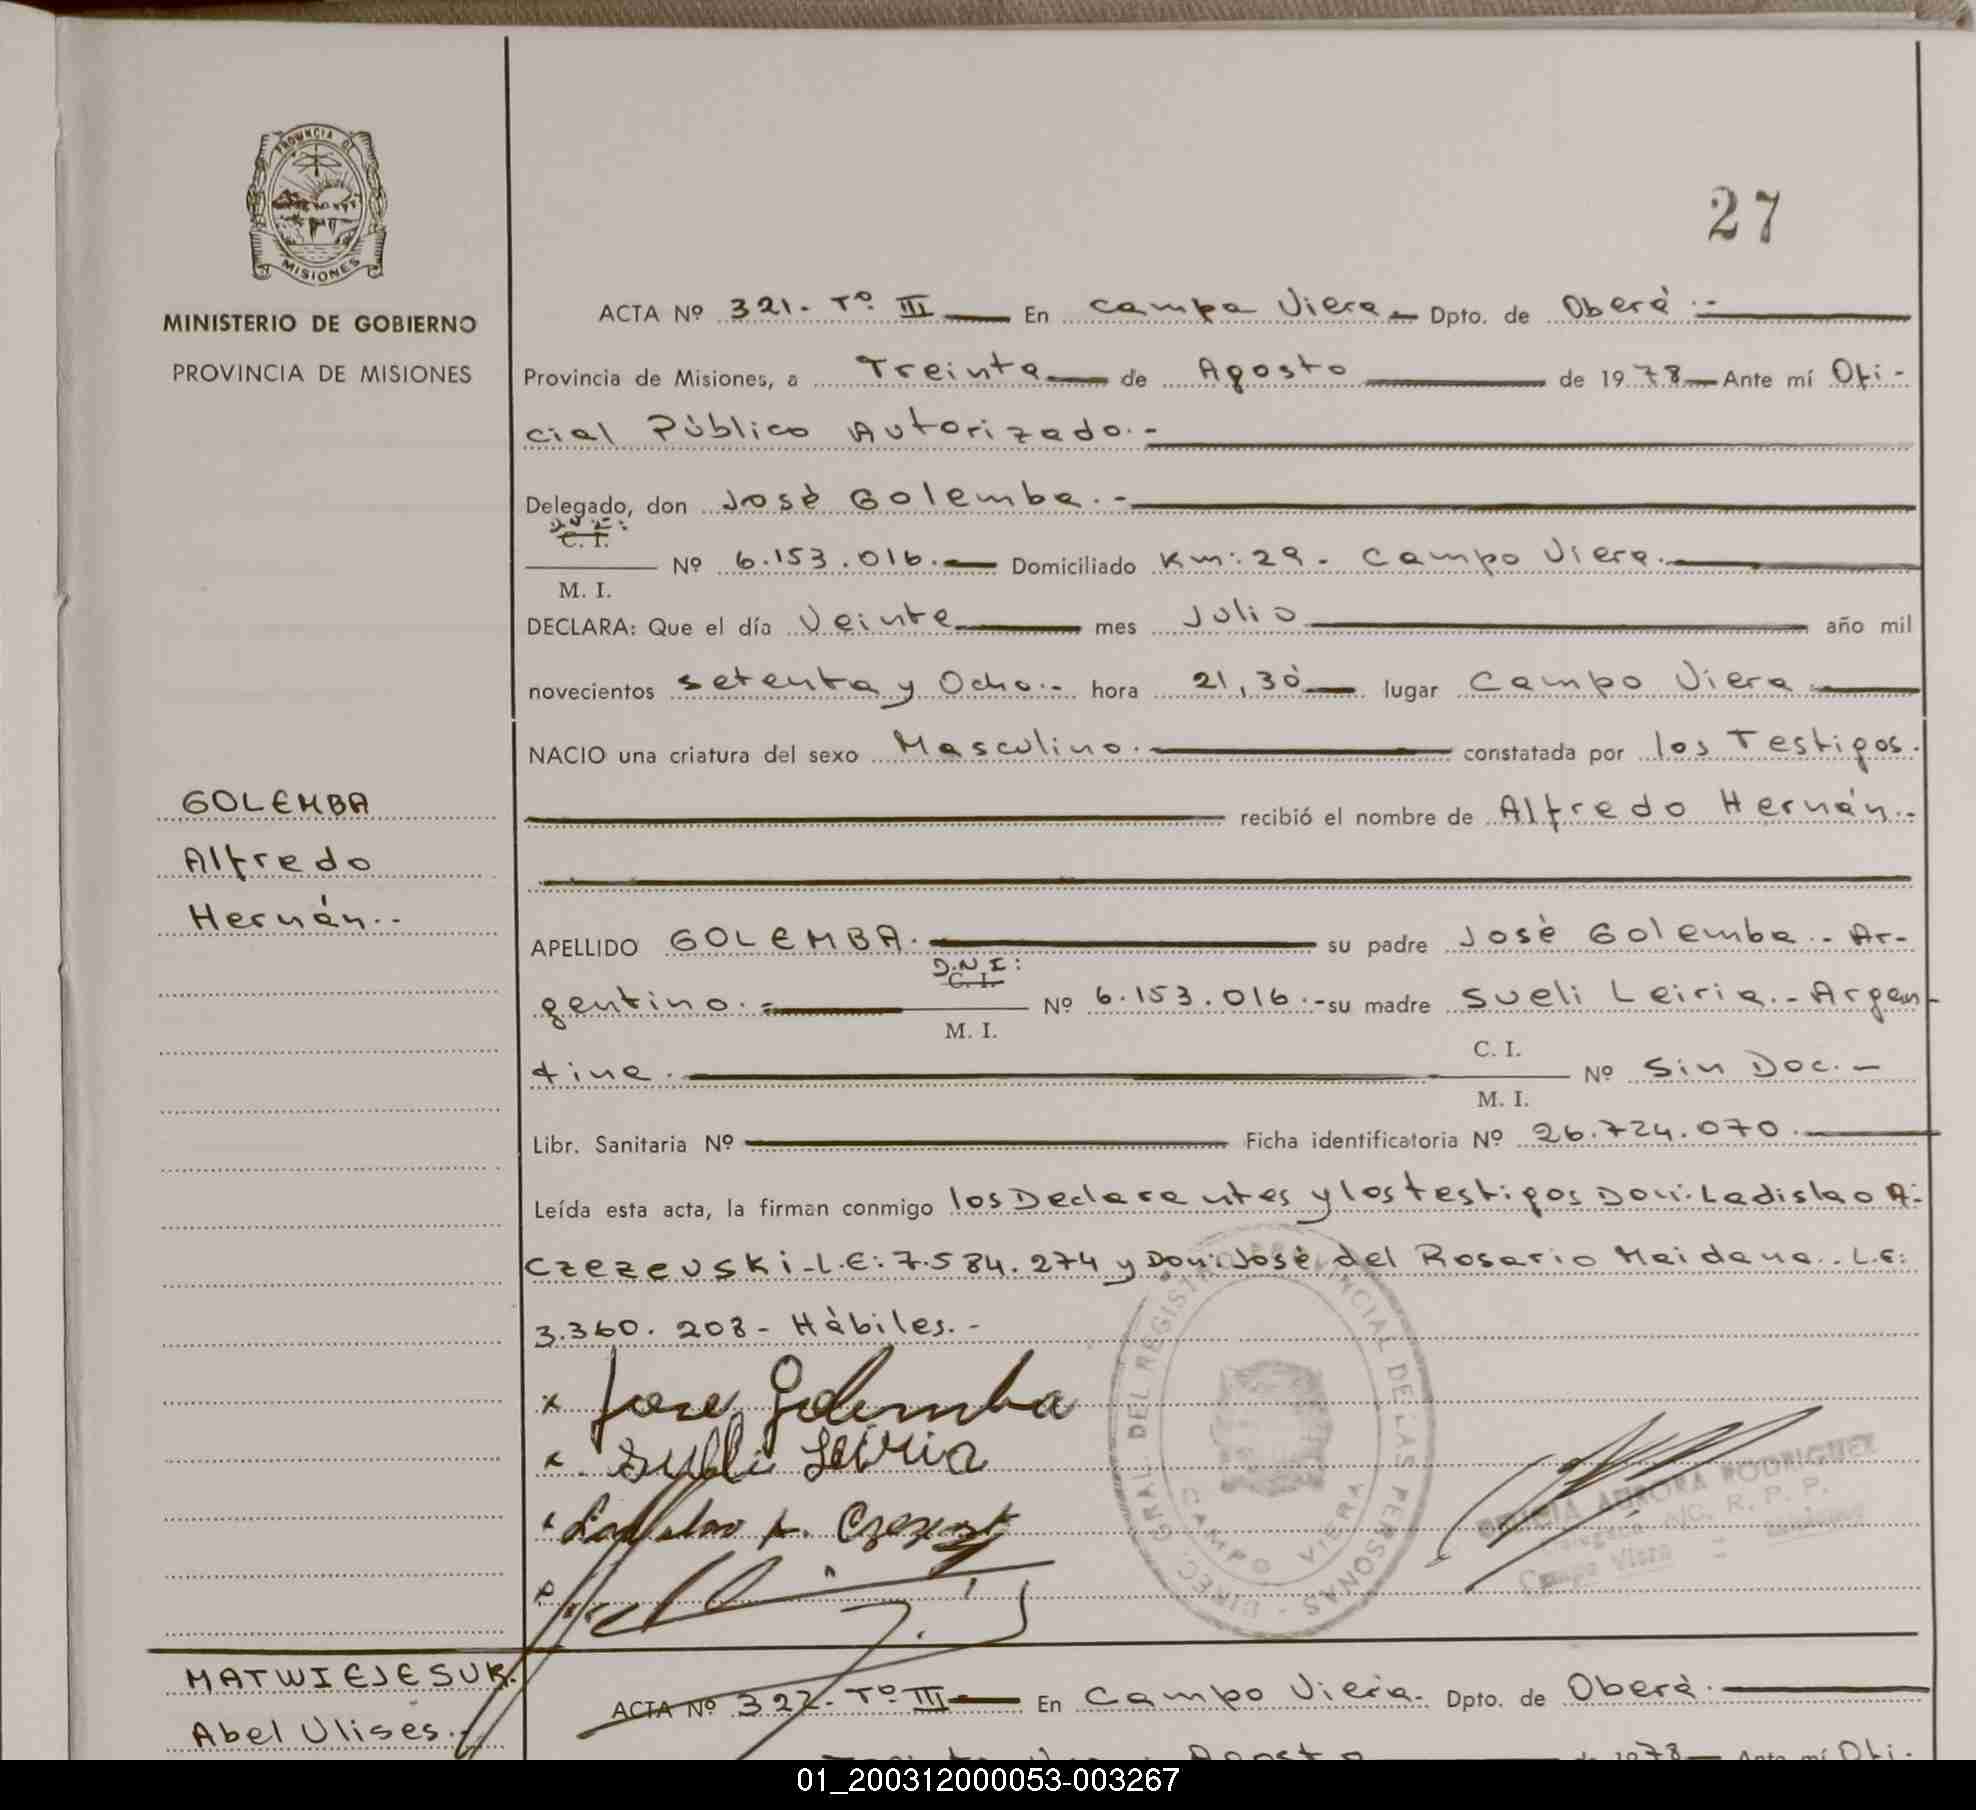 PROVINCIA DE
MISIONES
MINISTERIO DE GOBIERNO
PROVINCIA DE MISIONES
27
ACTA Nº 321.- Tº III En Campo Viera.- Dpto. de Oberá.-
Provincia de Misiones, a Treinta de Agosto de 1978 Ante mí Ofi-
cial Público Autorizado.-
Delegado, don José Golemba.-
D.N.I:
C. I.
M. I.
Nº 6.153.016.- Domiciliado Km: 29.- Campo Viera.
DECLARA: Que el día Veinte mes Julio año mil
novecientos setenta y Ocho.- hora 21,30 lugar Campo Viera
NACIO una criatura del sexo Masculino. constatada por los Testigos.
recibió el nombre de Alfredo Hernán.-
GOLEMBA
Alfredo
Hernán.-
APELLIDO GOLEMBA. su padre José Golemba.- Ar-
D.N.I:
C. I.
gentino.= Nº 6.153.016.- su madre Sueli Leiria.- Argen-
M. I.
C. I.
tina. Nº Sin Doc.-
M. I.
Libr. Sanitaria Nº Ficha identificatoria Nº 26.724.070.
Leída esta acta, la firman conmigo los Declarantes y los testigos Don: Ladislao A.
Czezevski-L.E: 7.584.274 y Don: José del Rosario Maidana.. L.E:
3.360.208- Hábiles.-
x Jose Golemba
x Sueli Leiria
x Ladislao A.
DIREC. GRAL. DEL REGISTRO PROVINCIAL DE LAS PERSONAS
CAMPO VIERA
AURORA RODRIGUEZ
R. P. P.
Campo Viera
MATWIEJESUK.
Abel Ulises.-
ACTA Nº 322.- Tº III En Campo Viera. Dpto. de Oberá.
Agosto de 1978 Ante mí Ofi-
01_200312000053-003267